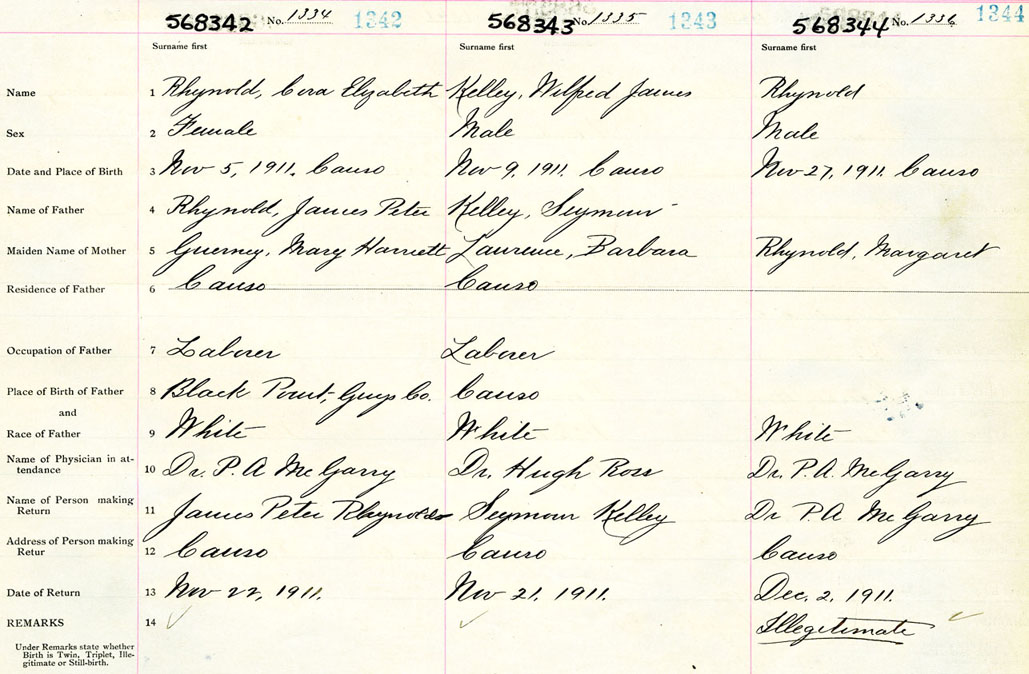 568342 No. 1334 1342 568343 No. 1335 1343 568344 No. 1336 1344
Surname first Surname first Surname first
Name 1 Rhynold, Cora Elizabeth Kelley, Wilfred James Rhynold
Sex 2 Female Male Male
Date and Place of Birth 3 Nov 5, 1911. Canso Nov 9, 1911. Canso Nov 27, 1911. Canso
Name of Father 4 Rhynold, James Peter Kelley, Seymour
Maiden Name of Mother 5 Guerney, Mary Harriett Laurence, Barbara Rhynold, Margaret
Residence of Father 6 Canso Canso
Occupation of Father 7 Laborer Laborer
Place of Birth of Father 8 Black Point, Guys Co. Canso
and
Race of Father 9 White White White
Name of Physician in at-
tendance 10 Dr. P. A McGarry Dr. Hugh Ross Dr. P. A. McGarry
Name of Person making
Return 11 James Peter Rhynolds Seymour Kelley Dr P. A McGarry
Address of Person making
Retur 12 Canso Canso Canso
Date of Return 13 Nov 22, 1911. Nov 21, 1911. Dec. 2, 1911.
REMARKS 14 Illegitimate
Under Remarks state whether
Birth is Twin, Triplet, Ille-
gitimate or Still-birth.